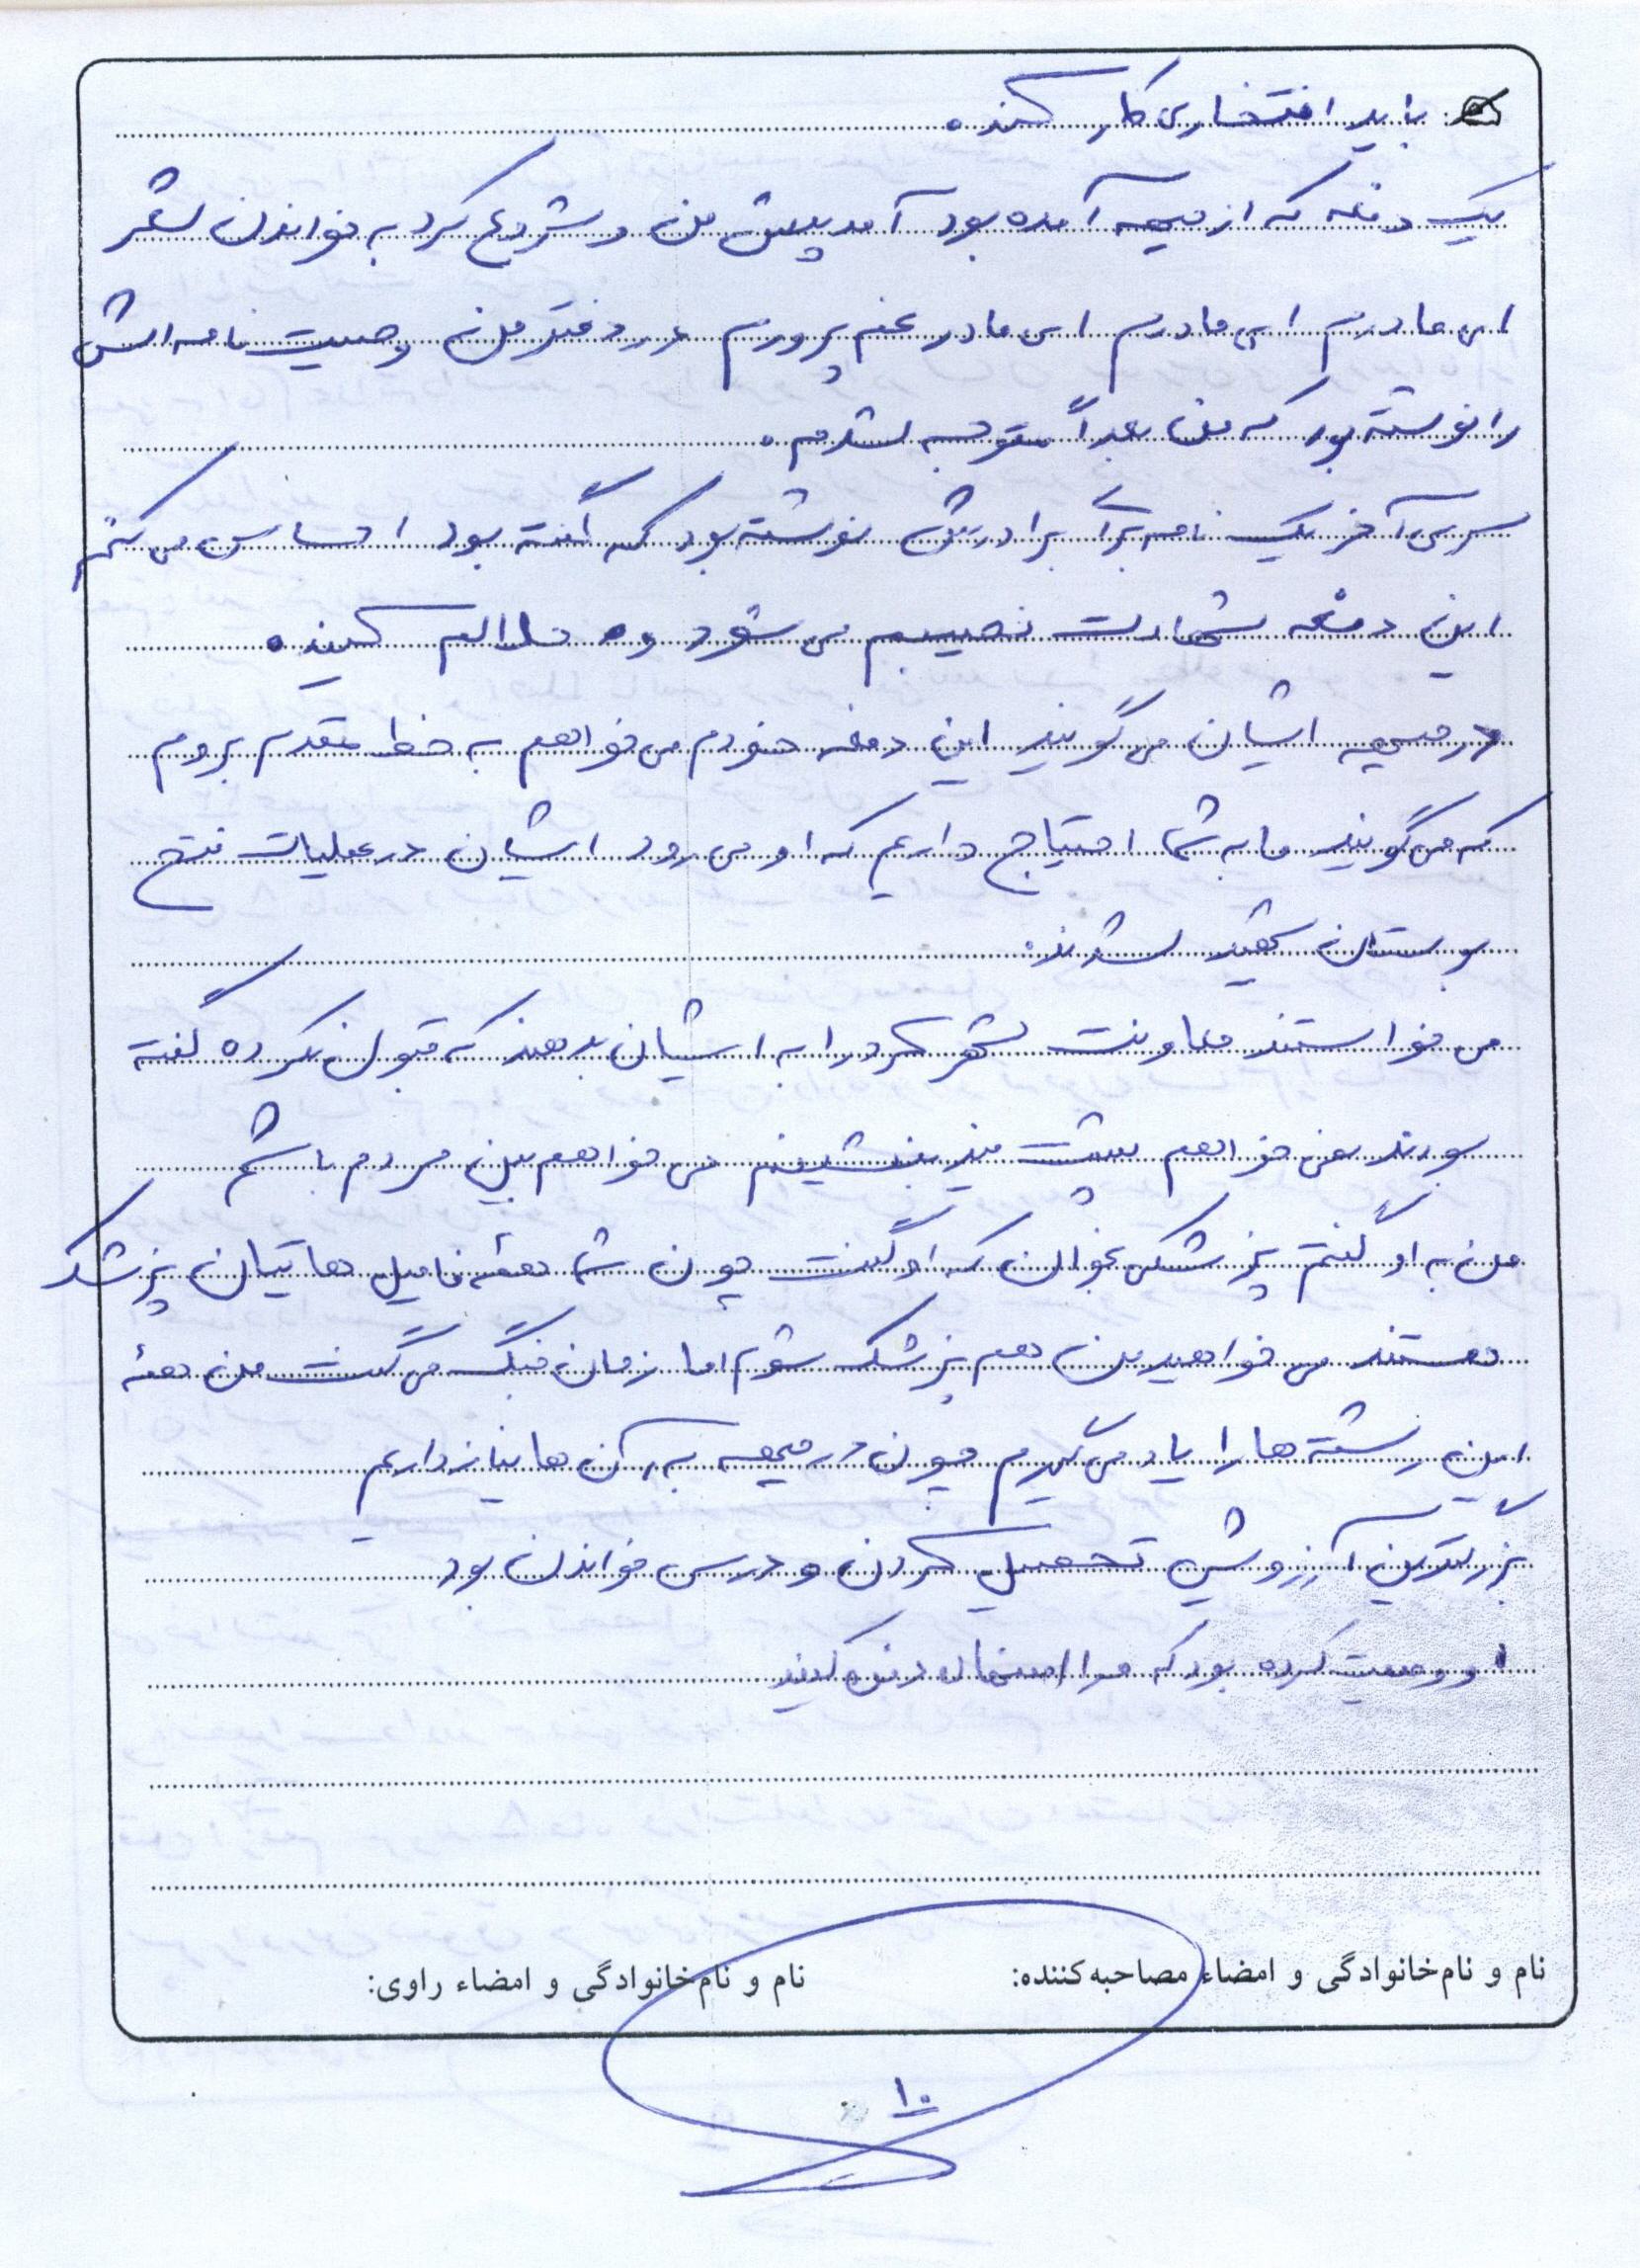 باید افتخاری کار کنند.
یک دفعه که از جبهه آمده بود آمد پیش من و شروع کرد به خواندن شعر
ای مادرم ای مادرم ای مادر غم پرورم در دفتر من وصیت نامه اش
را نوشته بود که من بعداً متوجه شدم.
سری آخر یک نامه برای برادرش نوشته بود که گفته بود احساس می کنم
این دفعه شهادت نصیبم می شود و حلالم کنید.
در جبهه ایشان می گویند این دفعه خودم می خواهم به خط مقدم بروم
که می گویند ما به شما احتیاج داریم که او می رود ایشان در عملیات فتح
بوستان شهید شدند.
می خواستند معاونت شهرکرد را به ایشان بدهند که قبول نکرده گفته
بودند نمی خواهم پشت میز بنشینم می خواهم بین مردم باشم
من به او گفتم پزشکی بخوان که او گفت چون شما همهٔ فامیل هاتیان پزشک
هستند می خواهید من هم پزشک شوم اما زمان جنگ می گفت من همهٔ
این رشته ها را یاد می گیرم چون در جبهه به آن ها نیاز داریم
بزرگترین آرزوش تحصیل کردن و درس خواندن بود
او وصیت کرده بود که مرا اصفهان دفن کنید
نام و نام‌خانوادگی و امضاء مصاحبه‌کننده: نام و نام‌خانوادگی و امضاء راوی:
۱۰